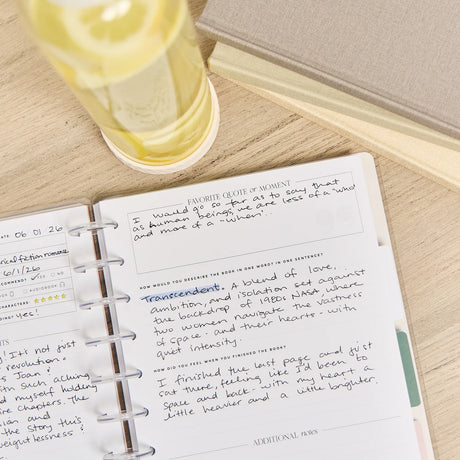 DATE 06.01.26
historical fiction romance
6/1/26
COMMEND? YES NO
AUDIOBOOK
CHARACTERS
yes!
! It's not just
revolution
Joan!
with such aching
myself holding
chapters. The
and
the story this
weightlessness
FAVORITE QUOTE or MOMENT
I would go so far as to say that
as human beings, we are less of a 'who'
and more of a 'when'...
HOW WOULD YOU DESCRIBE THE BOOK IN ONE WORD? IN ONE SENTENCE?
Transcendent. A blend of love,
ambition, and isolation set against
the backdrop of 1980s NASA where
two women navigate the vastness
of space. and their hearts. with
quiet intensity.
HOW DID YOU FEEL WHEN YOU FINISHED THE BOOK?
I finished the last page and just
sat there, feeling like I'd been to
space and back. with my heart a
little heavier and a little brighter.
ADDITIONAL notes